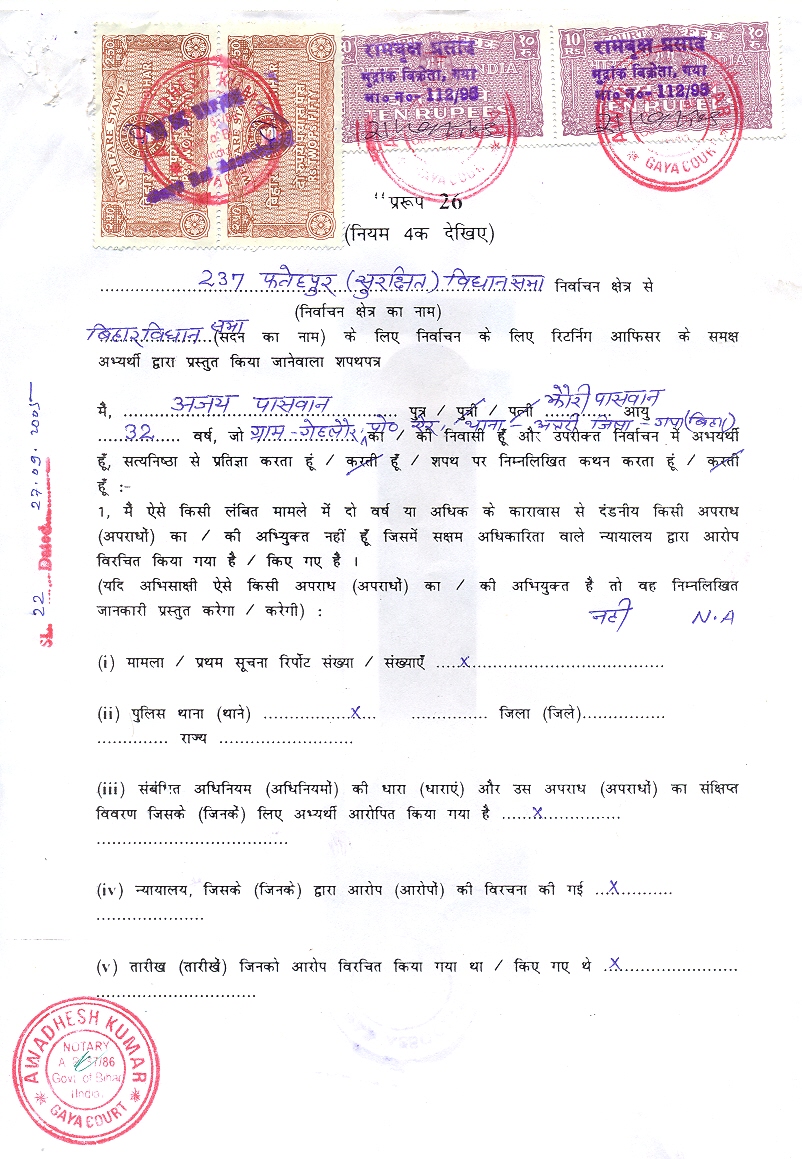 WELFARE STAMP
BIHAR
RS.TWO PS.FIFTY
2.50
10 RS.
१० रु.
रामवृक्ष प्रसाद
मुद्रांक विक्रेता, गया
भा० न०- 112/95
TEN RUPEES
रामवृक्ष प्रसाद
मुद्रांक विक्रेता, गया
भा० न०- 112/95
TEN RUPEES
GAYA COURT
"प्ररूप 26
(नियम 4क देखिए)
237 फतेहपुर (सुरक्षित) विधान सभा निर्वाचन क्षेत्र से
(निर्वाचन क्षेत्र का नाम)
बिहार विधान सभा (सदन का नाम) के लिए निर्वाचन के लिए रिटर्निग आफिसर के समक्ष
अभ्यर्थी द्वारा प्रस्तुत किया जानेवाला शपथपत्र
मै, अजय पासवान पुत्र / पुत्री / पत्नी झौरी पासवान आयु
32 वर्ष, जो ग्राम - गेहलौर, पो० का / की निवासी हूँ और उपरोक्त निर्वाचन में अभयर्थी
हूँ, सत्यनिष्ठा से प्रतिज्ञा करता हूं / करती हूँ / शपथ पर निम्नलिखित कथन करता हूं / करती
हूँ :-
1, मै ऐसे किसी लंबित मामले में दो वर्ष या अधिक के कारावास से दंडनीय किसी अपराध
(अपराधों) का / की अभ्युिक्त नहीं हूँ जिसमें सक्षम अधिकारिता वाले न्यायालय द्वारा आरोप
विरचित किया गया है / किए गए है ।
(यदि अभिसाक्षी ऐसे किसी अपराध (अपराधों) का / की अभियुक्त है तो वह निम्नलिखित
जानकारी प्रस्तुत करेगा / करेगी) : नहीं N.A
(i) मामला / प्रथम सूचना रिर्पोट संख्या / संख्याएँ .....x.......................................
(ii) पुलिस थाना (थाने) .................x... ............... जिला (जिले)................
............. राज्य ..........................
(iii) संबंधित अधिनियम (अधिनियमों) की धारा (धाराएं) और उस अपराध (अपराधों) का संक्षिप्त
विवरण जिसके (जिनकें) लिए अभ्यर्थी आरोपित किया गया है ......x...............
.....................................
(iv) न्यायालय, जिसके (जिनके) द्वारा आरोप (आरोपों) की विरचना की गई ...x...........
.....................
(v) तारीख (तारीखें) जिनको आरोप विरचित किया गया था / किए गए थे ..x.......................
...............................
SL. 22 Dated 27.09.2005
AWADHESH KUMAR
NOTARY
Govt. of Bihar
(India)
GAYA COURT